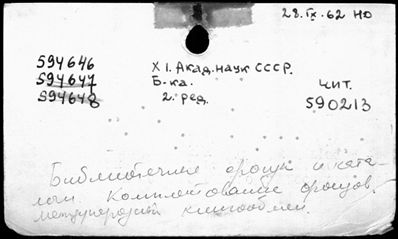 28.IX.62 НО
594646
594647
594648
XI. Акад. наук СССР.
Б-ка.
2. ред.
Чит.
590213
Библиотечные фонды и ката-
логи. Комплектование фондов.
Международный книгообмен.